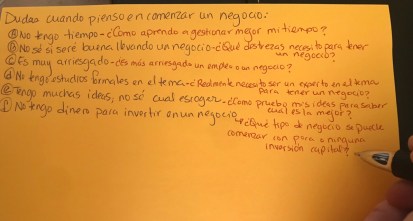 Dudas cuando pienso en comenzar un negocio:
ⓐ No tengo tiempo - ¿Cómo aprendo a gestionar mejor mi tiempo?
ⓑ No sé si seré buena llevando un negocio - ¿Qué destrezas necesito para tener
un negocio?
ⓒ Es muy arriesgado - ¿Es más arriesgado un empleo o un negocio?
ⓓ No tengo estudios formales en el tema - ¿Realmente necesito ser un experto en el tema
para tener un negocio?
ⓔ Tengo muchas ideas, no sé cual escoger. - ¿Cómo pruebo mis ideas para saber
cual es la mejor?
ⓕ No tengo dinero para invertir en un negocio
↳ ¿Qué tipo de negocio se puede
comenzar con poca o ninguna
inversión capital?